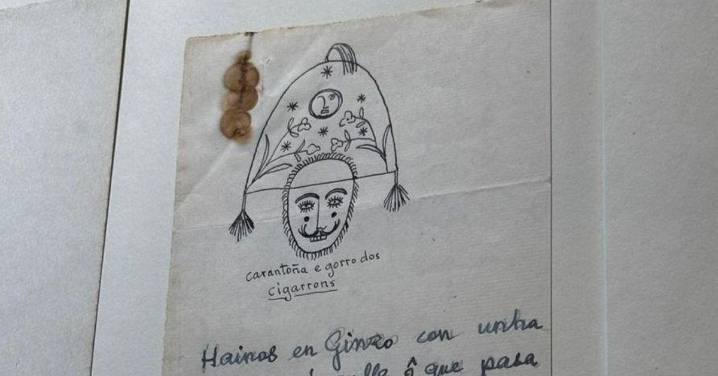 carantoña e gorro dos
cigarrons
Hainos en Ginzo con unha
ô que pasa